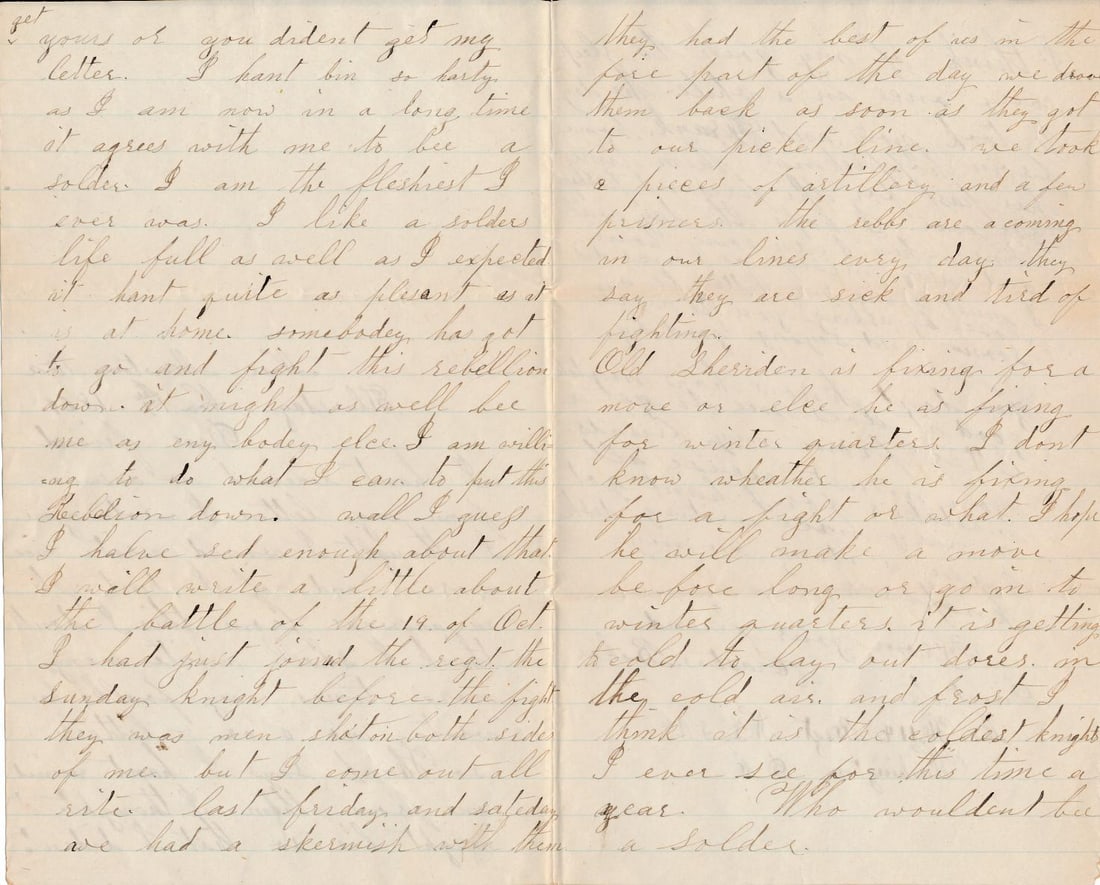 get
yours or you dident get my
letter. I hant bin so harty
as I am now in a long time
it agrees with me to bee a
solder. I am the fleshiest I
ever was. I like a solders
life full as well as I expected
it hant quite as plesant as it
is at home. somebodey has got
to go and fight this rebellion
down. it might as well bee
me as eny bodey elce. I am willi
ng to do what I can to put this
Rebelion down. wall I guess
I halve sed enough about that.
I will write a little about
the battle of the 19 of Oct.
I had just joind the regt. the
sunday knight before the fight
they was men shot on both sides
of me. but I come out all
rite. last friday and sateday
we had a skermish with them
they had the best of us in the
fore part of the day we drove
them back as soon as they got
to our picket line. we took
2 pieces of artillery and a few
prisners. the rebbs are a coming
in our lines evry day they
say they are sick and tird of
fighting.
Old Sherriden is fixing for a
move or elce he is fixing
for winter quarters. I dont
know wheather he is fixing
for a fight or what. I hope
he will make a move
be fore long or go in to
winter quarters. it is getting
to cold to lay out dores. in
the cold air. and frost I
think it is the coldest knights
I ever see for this time a
year. Who wouldent bee
a solder.